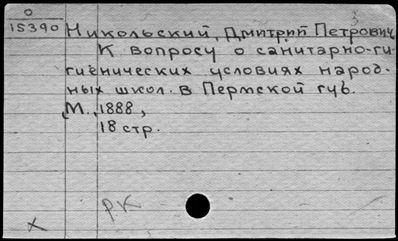 0
15390
Никольский, Дмитрий Петрович
К вопросу о санитарно-ги-
гиенических условиях народ-
ных школ. в Пермской губ.
М., 1888,
18 стр.
РК
х